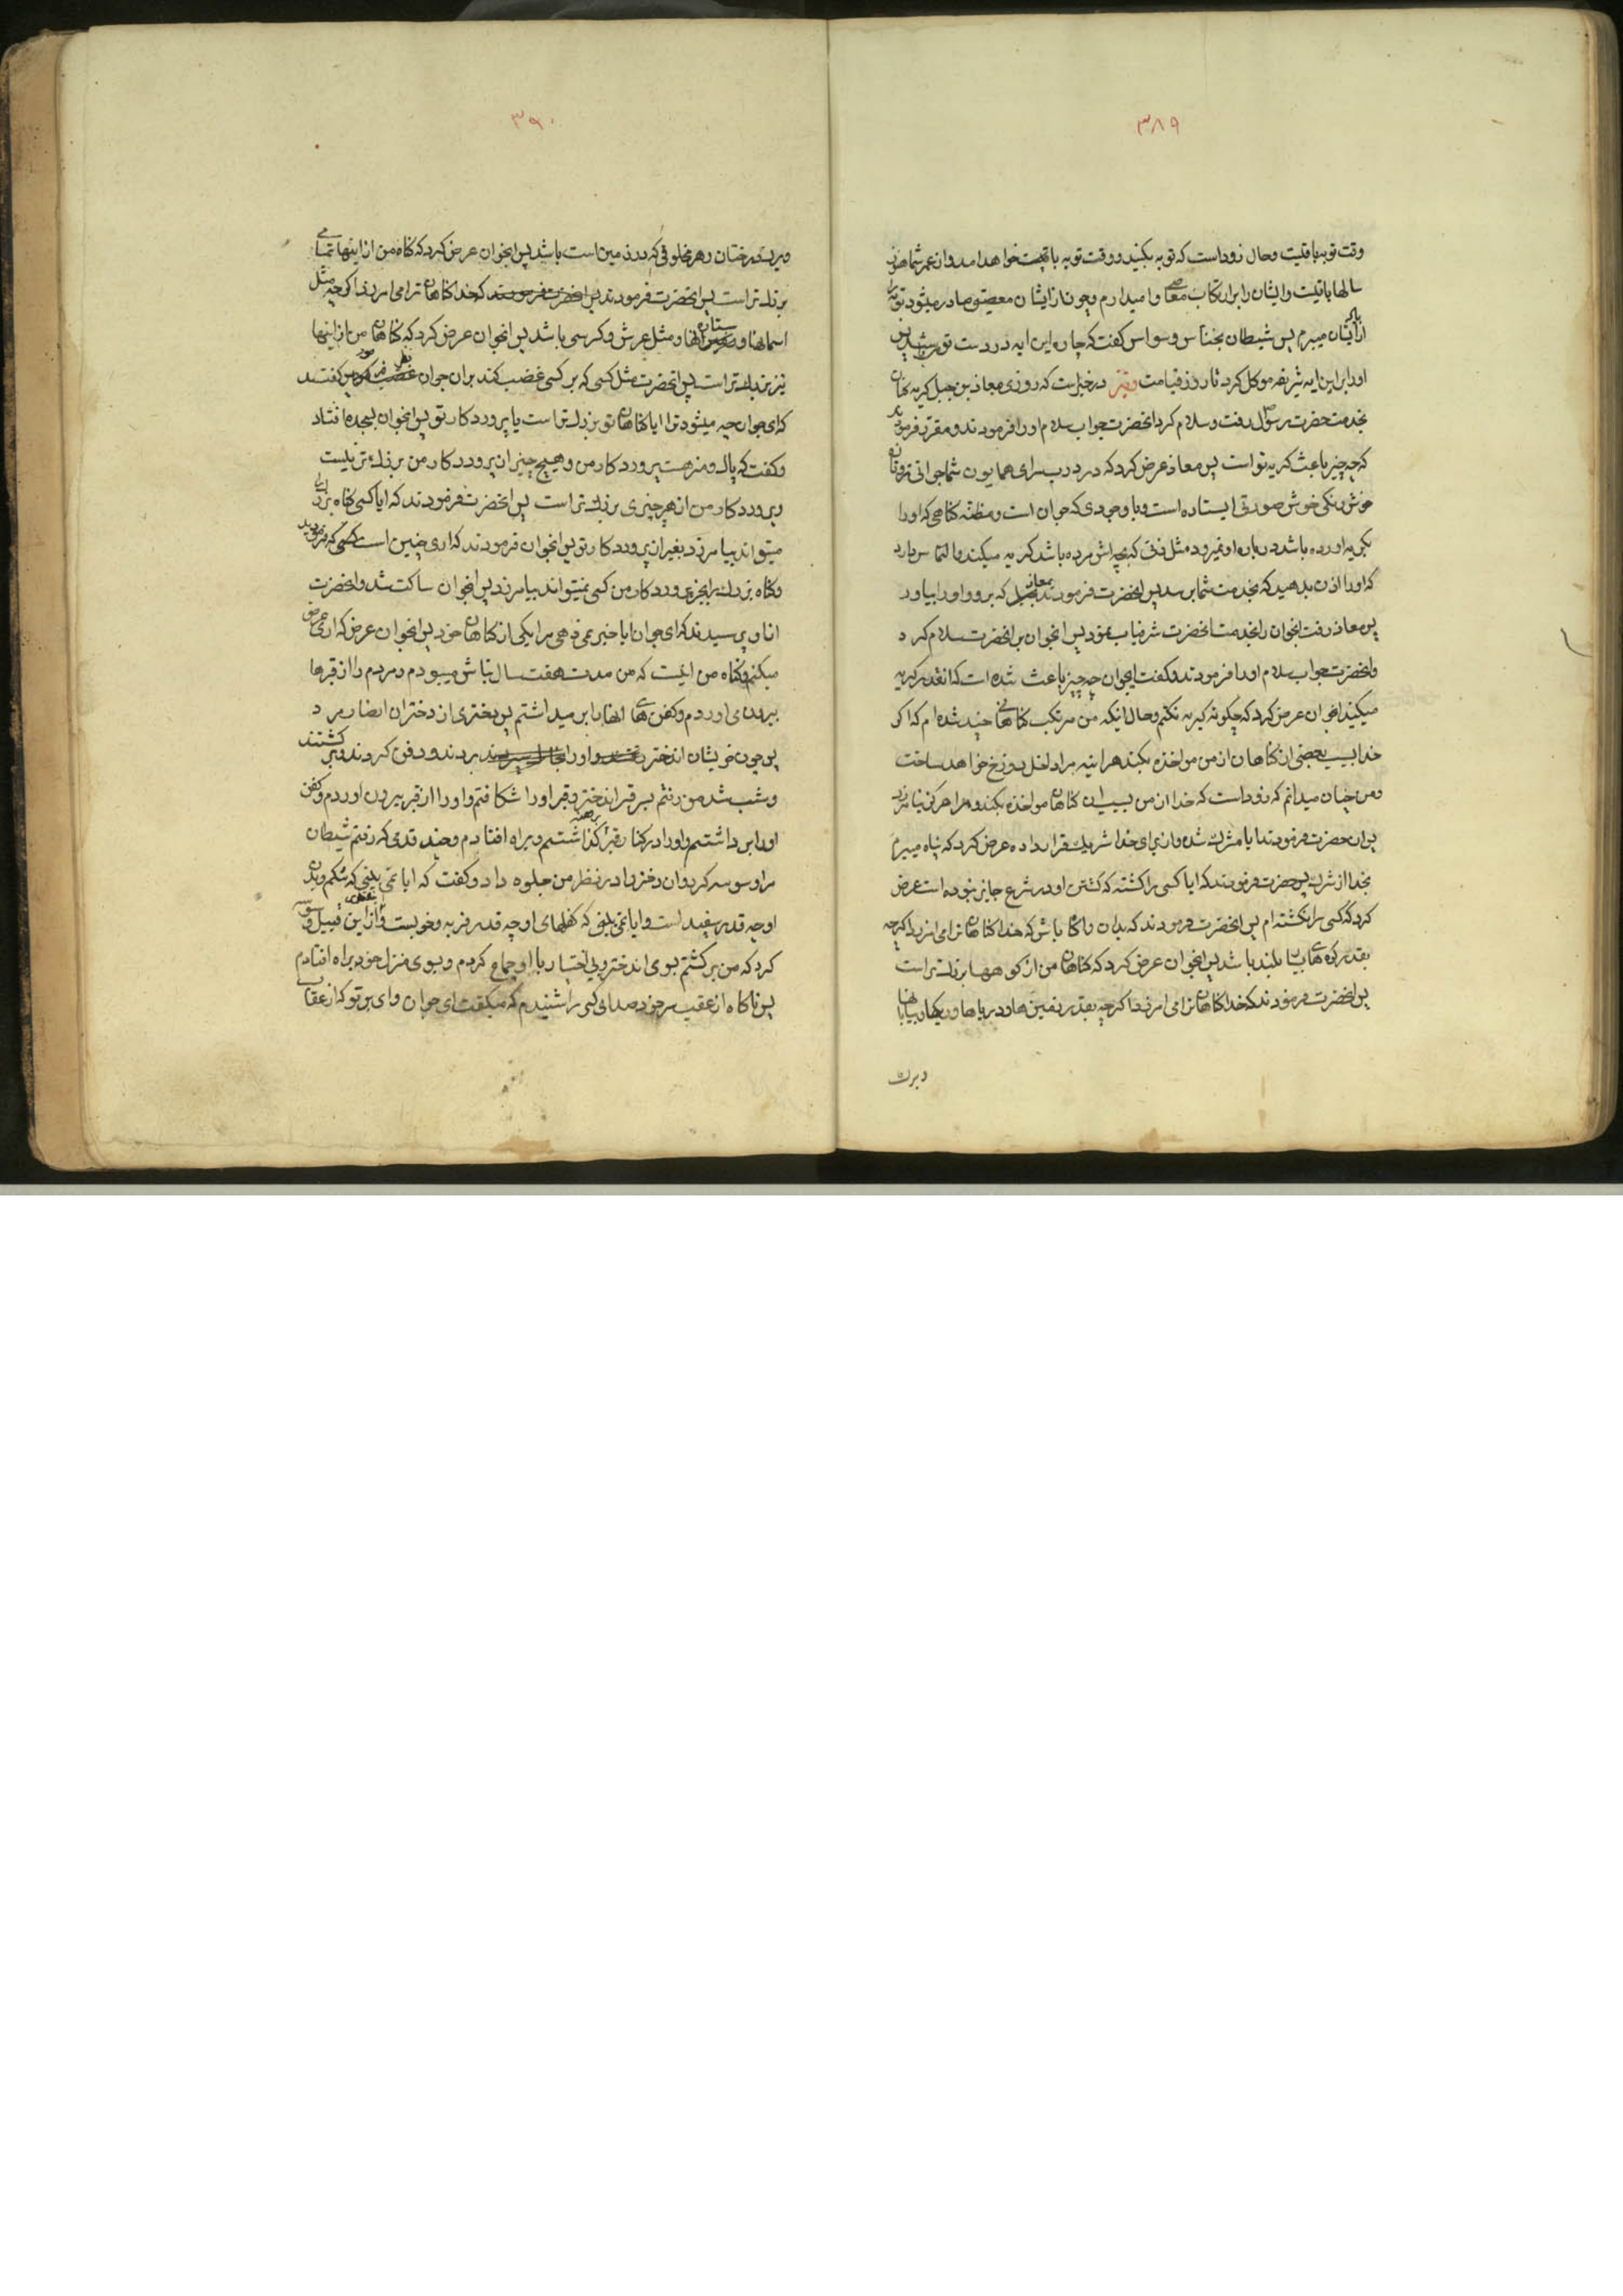 ۳۸۹
وقت توبه باقیست وحال زود است که توبه بکنید و وقت توبه باقیست خواهد امد و از عمر شما هنوز
سالها باقیست و ایشان را بر ارتکاب معاصی وامیدارم و چون از ایشان معصیتی صادر میشود توبه را
از یاد ایشان میبرم پس شیطان بخناس وسواس گفت که چاره این ایه در دست تو
او را بر این ایه شریفه موکل کرد تا روز قیامت و نیز در خبر است که روزی معاذ بن جبل گریه کنان
بخدمت حضرت رسول رفت و سلام کرد انحضرت جواب سلام او را فرمودند و مقرر فرمودند
که چه چیز باعث گریه تو است پس معاذ عرض کرد که در درب سرای همایون شما جوانی تر و تازه
خوش رنگی خوش صورتی ایستاده است و با وجودی که جوان است و مظنّه گناهی که او را
بگریه اورده باشد در باره او نمیرود مثل زنی که بچه اش مرده باشد گریه میکند و التماس دارد
که او را اذن بدهید که بخدمت شما برسد پس انحضرت فرمودند بمعاذ که برو و او را بیاور
پس معاذ رفت انجوان را بخدمت انحضرت شرفیاب نمود پس انجوان بر انحضرت سلام کرد
و انحضرت جواب سلام او را فرمودند و گفت ایجوان چه چیز باعث شده است که انقدر گریه
میکنید انجوان عرض کرد که چگونه گریه نکنم و حال انکه من مرتکب گناهانی چند شده ام که اگر
خدا بسبب بعضی از گناهان از من مواخذه بکند هراینه مرا داخل دوزخ خواهد ساخت
و من چنان میدانم که زود است که خدا از من بسبب ان گناهان مواخذه بکند و مرا هرگز نیامرزد
پس ان حضرت فرمودند ایا مشرک شده و از برای خدا شریک قرار داده عرض کرد که پناه میبرم
بخدا از شرک پس حضرت فرمودند که ایا کسی را کشته که کشتن او در شرع جایز نبوده است عرض
کرد که کسی را نکشته ام پس انحضرت فرمودند که بدان و اگاه باش که خدا گناهان ترا می امرزد اگرچه
بقدر کوه های بلند باشد پس انجوان عرض کرد که گناهان من از کوهها بزرگتر است
پس انحضرت فرمودند که خدا گناهان ترا می امرزد اگرچه بقدر زمین ها و دریاها و ریگهای بیابانها
و برک
۳۹۰
و برک درختان و هر مخلوقی که در زمین است باشد پس انجوان عرض کرد که گناه من از اینها تمامی
بزرگ تر است پس انحضرت فرمودند پس انحضرت فرمودند که خدا گناهان ترا می امرزد اگرچه مثل
اسمانها و ستاره انها و مثل عرش و کرسی باشد پس انجوان عرض کرد که گناهان من از اینها
نیز بزرک تر است پس انحضرت مثل کسی که بر کسی غضب کند بر ان جوان نظر فرمود پس گفتند
که ای جوان چه میشود ترا ایا گناهان تو بزرگ تر است یا پروردکار تو پس انجوان بسجده افتاد
و گفت که پاک و منزهست پروردکار من و هیچ چیز از پروردکار من بزرگ تر نیست
و پروردکار من از هر چیزی بزرگ تر است پس انحضرت فرمودند که ایا کسی گناه بزرگ را
میتواند بیامرزد بغیر از پروردکار تو پس انجوان فرمودند که اری چنین است که فرمودید
و گناه بزرگ را بجز پروردکار من کسی نمیتواند بیامرزد پس انجوان ساکت شد و انحضرت
از او پرسیدند که ای جوان ایا خبر نمی دهی مرا بیکی از گناهان خود پس انجوان عرض که اری عرض
میکنم و گناه من اینست که من مدت هفت سال نباش میبودم و مردم را از قبرها
بیرون می اوردم و کفن های انها را بر میداشتم پس دختری از دختران انصار مرد
پس چون خویشان اندختر او را بردند و دفن کردند و برگشتند
و شب شد من رفتم بسر قبر اندختر و قبر او را شکافتم و او را از قبر بیرون اوردم و کفن
او را بر داشتم و او را در کنار قبر برهنه گذاشتم و براه افتادم و چند قدمی که رفتم شیطان
مرا وسوسه کرد و ان دختر را در نظر من جلوه داد و گفت که ایا نمی بینی که شکم و بدن
او چه قدر سفید است و ایا نمی بینی که کفلهای او چه قدر فربه و خوبست و از این قبیل وسوسه
کرد که من برگشتم بسوی اندختر و بی اختیار با او جماع کردم و بسوی منزل خود براه افتادم
پس ناگاه از عقب سر خود صدای کسی را شنیدم که میگفت ای جوان وای بر تو که از